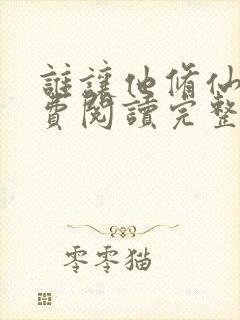 誰讓他脩仙
費閱讀完整
零零猫